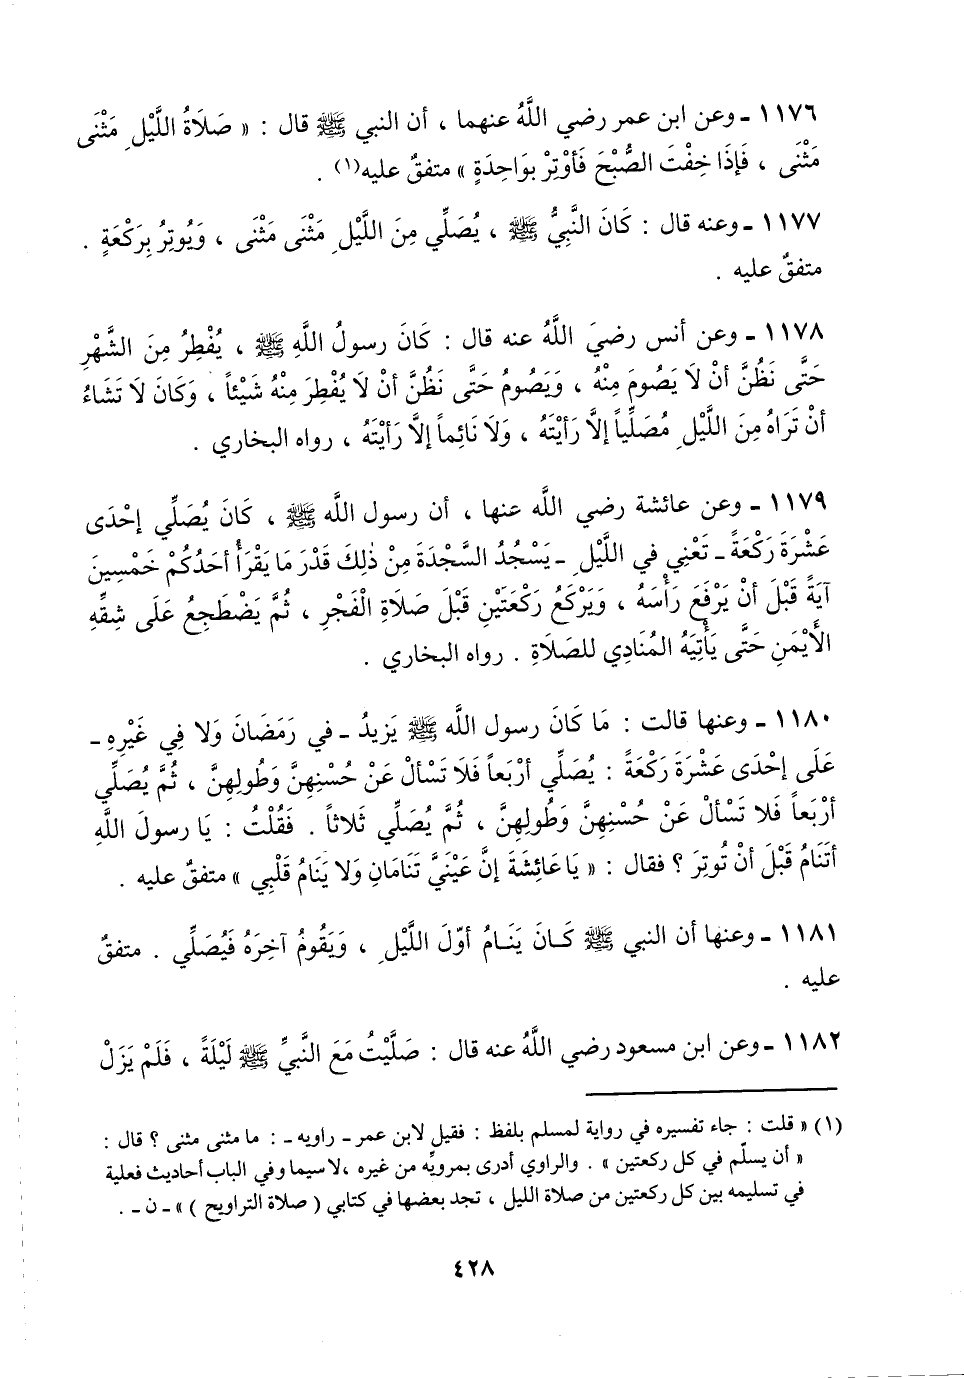 ١١٧٦ ـ وعن ابن عمر رضي اللَّهُ عنهما ، أن النبي ﷺ قال : « صَلَاةُ اللَّيْلِ مَثْنَى
مَثْنَى ، فَإِذَا خِفْتَ الصُّبْحَ فَأَوْتِرْ بوَاحِدَةٍ » متفقٌ عليه(١) .
١١٧٧ ـ وعنه قال : كَانَ النَّبِيُّ ﷺ ، يُصَلِّي مِنَ اللَّيْلِ مَثْنَى مَثْنَى ، وَيُوتِرُ بِرَكْعَةٍ .
متفقٌ عليه .
١١٧٨ ـ وعن أنس رضيَ اللَّهُ عنه قال : كَانَ رسولُ اللَّهِ ﷺ ، يُفْطِرُ مِنَ الشَّهْرِ
حَتَّى نَظُنَّ أنْ لَا يَصُومَ مِنْهُ ، وَيَصُومُ حَتَّى نَظُنَّ أنْ لَا يُفْطِرَ مِنْهُ شَيْئاً ، وَكَانَ لَا تَشَاءُ
أنْ تَرَاهُ مِنَ اللَّيْلِ مُصَلِّياً إلَّا رَأيْتَهُ ، وَلَا نَائِماً إلَّا رَأيْتَهُ ، رواه البخاري .
١١٧٩ ـ وعن عائشة رضي اللَّه عنها ، أن رسول اللَّه ﷺ ، كَانَ يُصَلِّي إحْدَى
عَشْرَةَ رَكْعَةً ـ تَعْنِي في اللَّيْلِ ـ يَسْجُدُ السَّجْدَةَ مِنْ ذٰلِكَ قَدْرَ مَا يَقْرَأُ أحَدُكُمْ خَمْسِينَ
آيَةً قَبْلَ أنْ يَرْفَعَ رَأْسَهُ ، وَيَرْكَعُ رَكْعَتَيْنِ قَبْلَ صَلَاةِ الْفَجْرِ ، ثُمَّ يَضْطَجِعُ عَلَى شِقِّهِ
الأَيْمَنِ حَتَّى يَأْتِيَهُ المُنَادِي للصَلَاةِ . رواه البخاري .
١١٨٠ ـ وعنها قالت : مَا كَانَ رسول اللَّه ﷺ يَزِيدُ ـ في رَمَضَانَ وَلا فِي غَيْرِهِ ـ
عَلَى إحْدَى عَشْرَةَ رَكْعَةً : يُصَلِّي أرْبَعاً فَلَا تَسْألْ عَنْ حُسْنِهِنَّ وَطُولِهِنَّ ، ثُمَّ يُصَلِّي
أرْبَعاً فَلا تَسْألْ عَنْ حُسْنِهِنَّ وَطُولِهِنَّ ، ثُمَّ يُصَلِّي ثَلاثاً . فَقُلْتُ : يَا رسولَ اللَّهِ
أتَنَامُ قَبْلَ أنْ تُوتِرَ ؟ فقال : « يَا عَائِشَةَ إنَّ عَيْنَيَّ تَنَامَانِ وَلا يَنَامُ قَلْبِي » متفقٌ عليه .
١١٨١ ـ وعنها أن النبي ﷺ كَـانَ يَنَـامُ أوّلَ اللَّيْلِ ، وَيَقُومُ آخِرَهُ فَيُصَلِّي . متفقٌ
عليه .
١١٨٢ ـ وعن ابن مسعود رضي اللَّهُ عنه قال : صَلَّيْتُ مَعَ النَّبِيِّ ﷺ لَيْلَةً ، فَلَمْ يَزَلْ
(١) « قلت : جاء تفسيره في رواية لمسلم بلفظ : فقيل لابن عمر ـ راويه ـ : ما مثنى مثنى ؟ قال :
« أن يسلّم في كل ركعتين » . والراوي أدرى بمرويِّه من غيره ،لا سيما وفي الباب أحاديث فعلية
في تسليمه بين كل ركعتين من صلاة الليل ، تجد بعضها في كتابي ( صلاة التراويح ) » ـ ن ـ .
٤٢٨